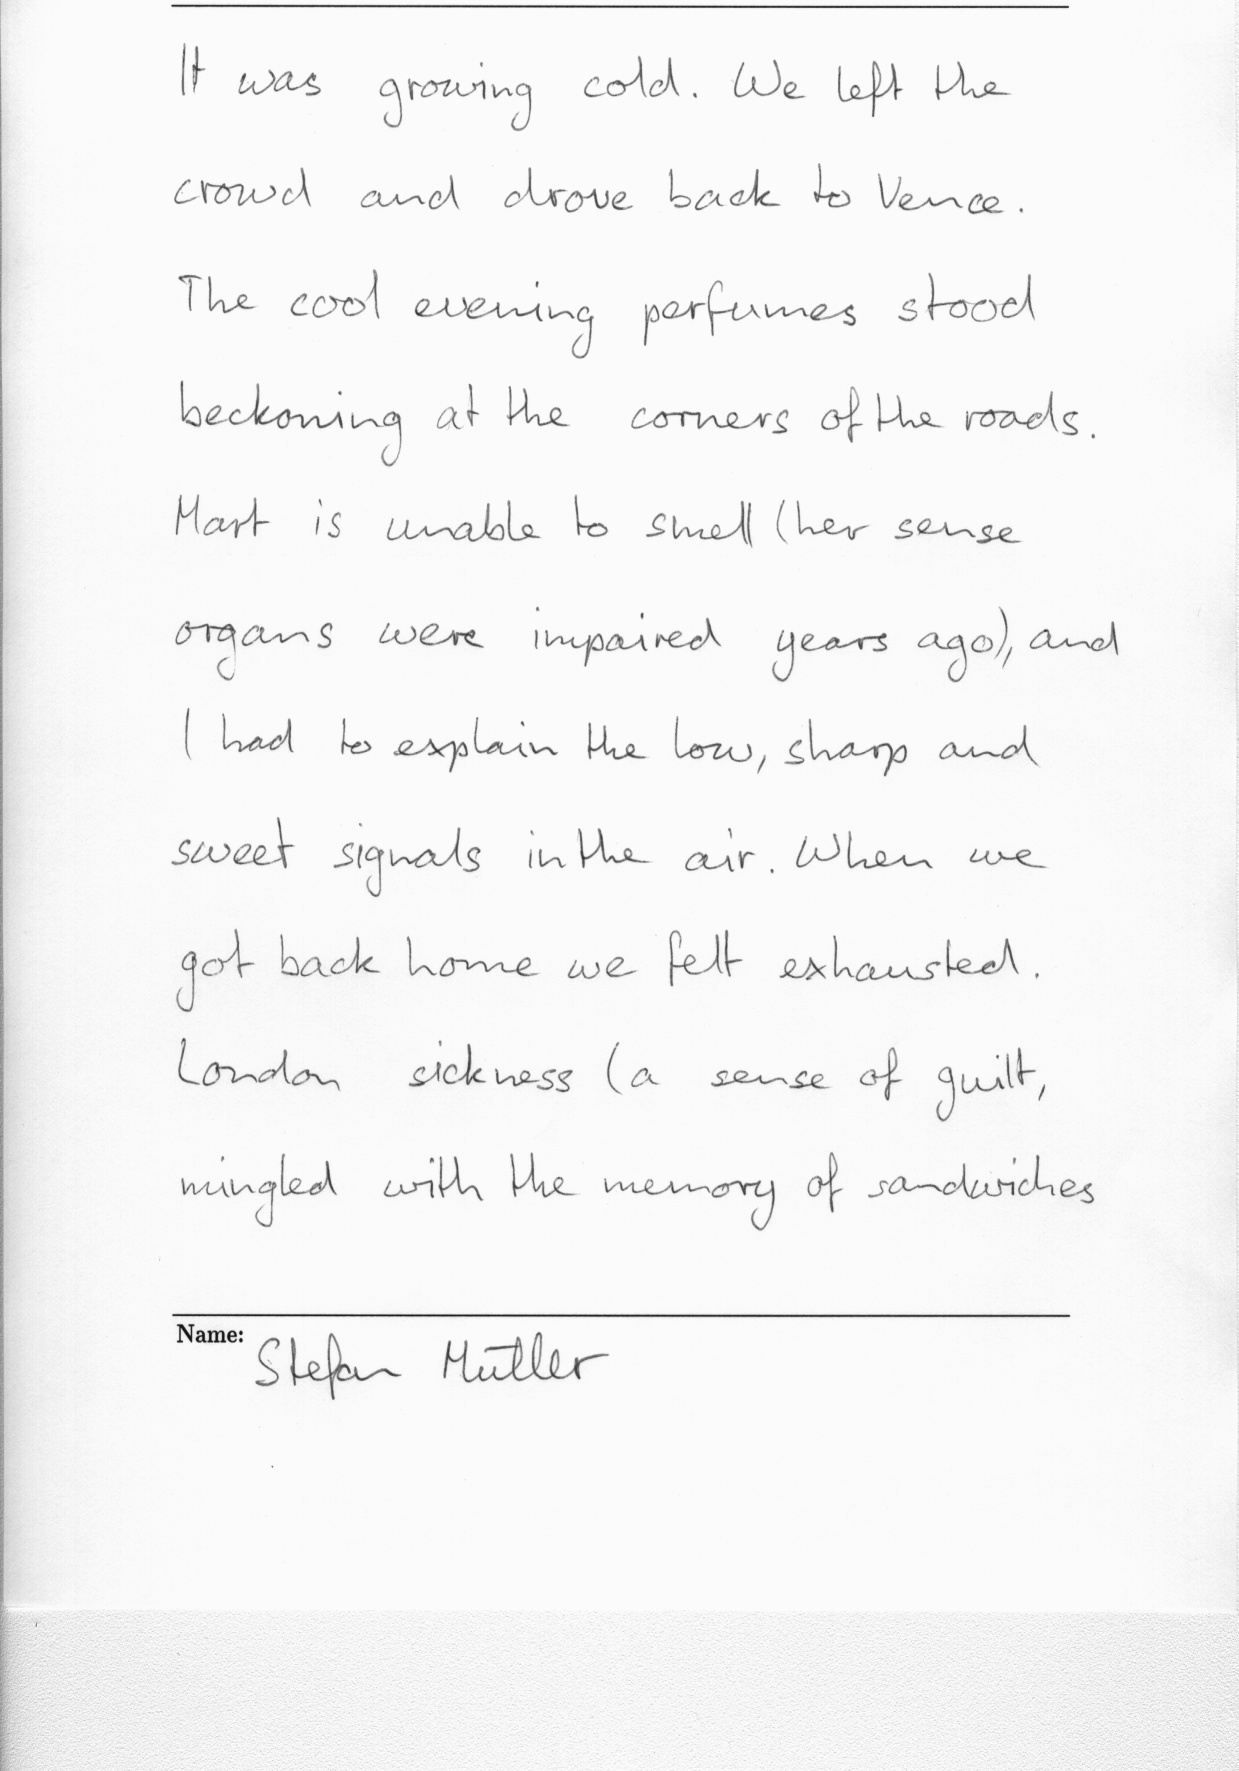 It was growing cold. We left the
crowd and drove back to Vence.
The cool evening perfumes stood
beckoning at the corners of the roads.
Mart is unable to smell (her sense
organs were impaired years ago), and
I had to explain the low, sharp and
sweet signals in the air. When we
got back home we felt exhausted.
London sickness (a sense of guilt,
mingled with the memory of sandwiches
Name: Stefan Müller